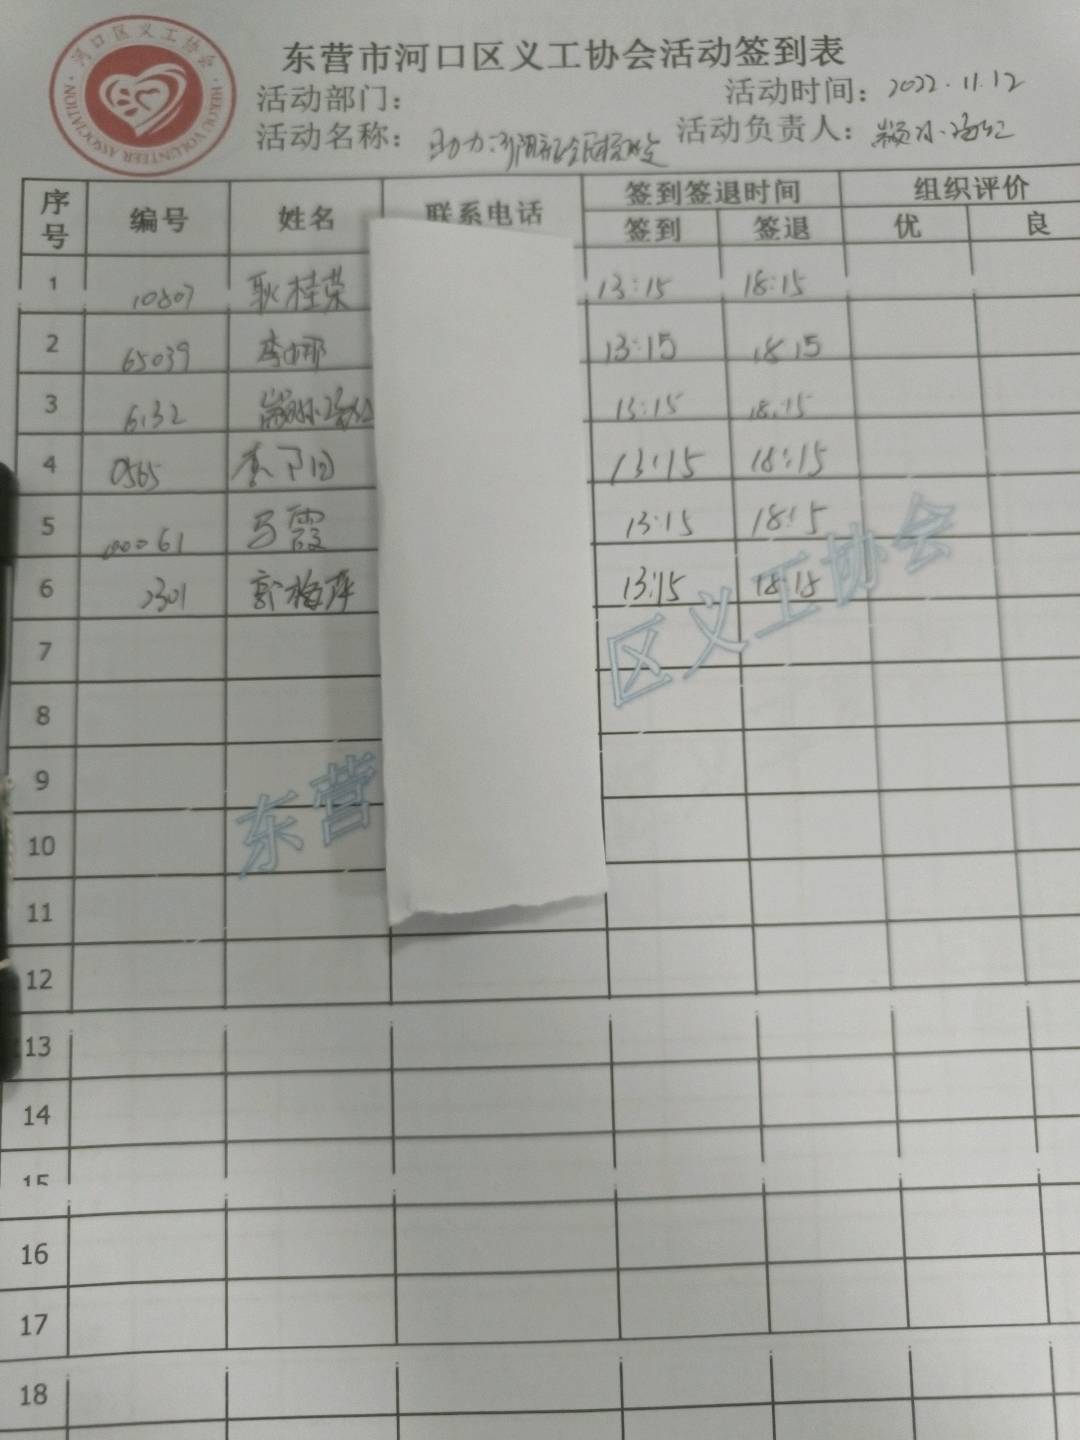 河口区义工协会
HEKOU VOLUNTEER ASSOCIATION
东营市河口区义工协会活动签到表
活动部门：
活动时间：2022.11.12
活动名称：助力
活动负责人：
序号 编号 姓名 联系电话 签到签退时间 组织评价
签到 签退 优 良
1 10807 耿桂荣 13:15 18:15
2 65039 李娜 13:15 18 15
3 6132 13:15 18:15
4 0565 13:15 18:15
5 000061 马霞 13:15 18:15
6 2301 郭梅萍 13:15 18:18
7
8
9
10
11
12
13
14
15
16
17
18
东营
区义工协会